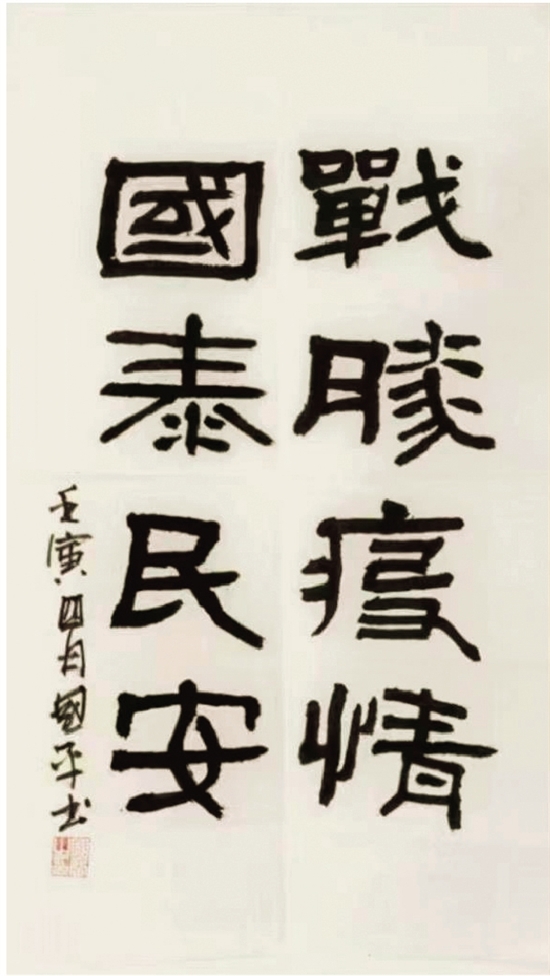 戰勝疫情
國泰民安
壬寅四月國平书